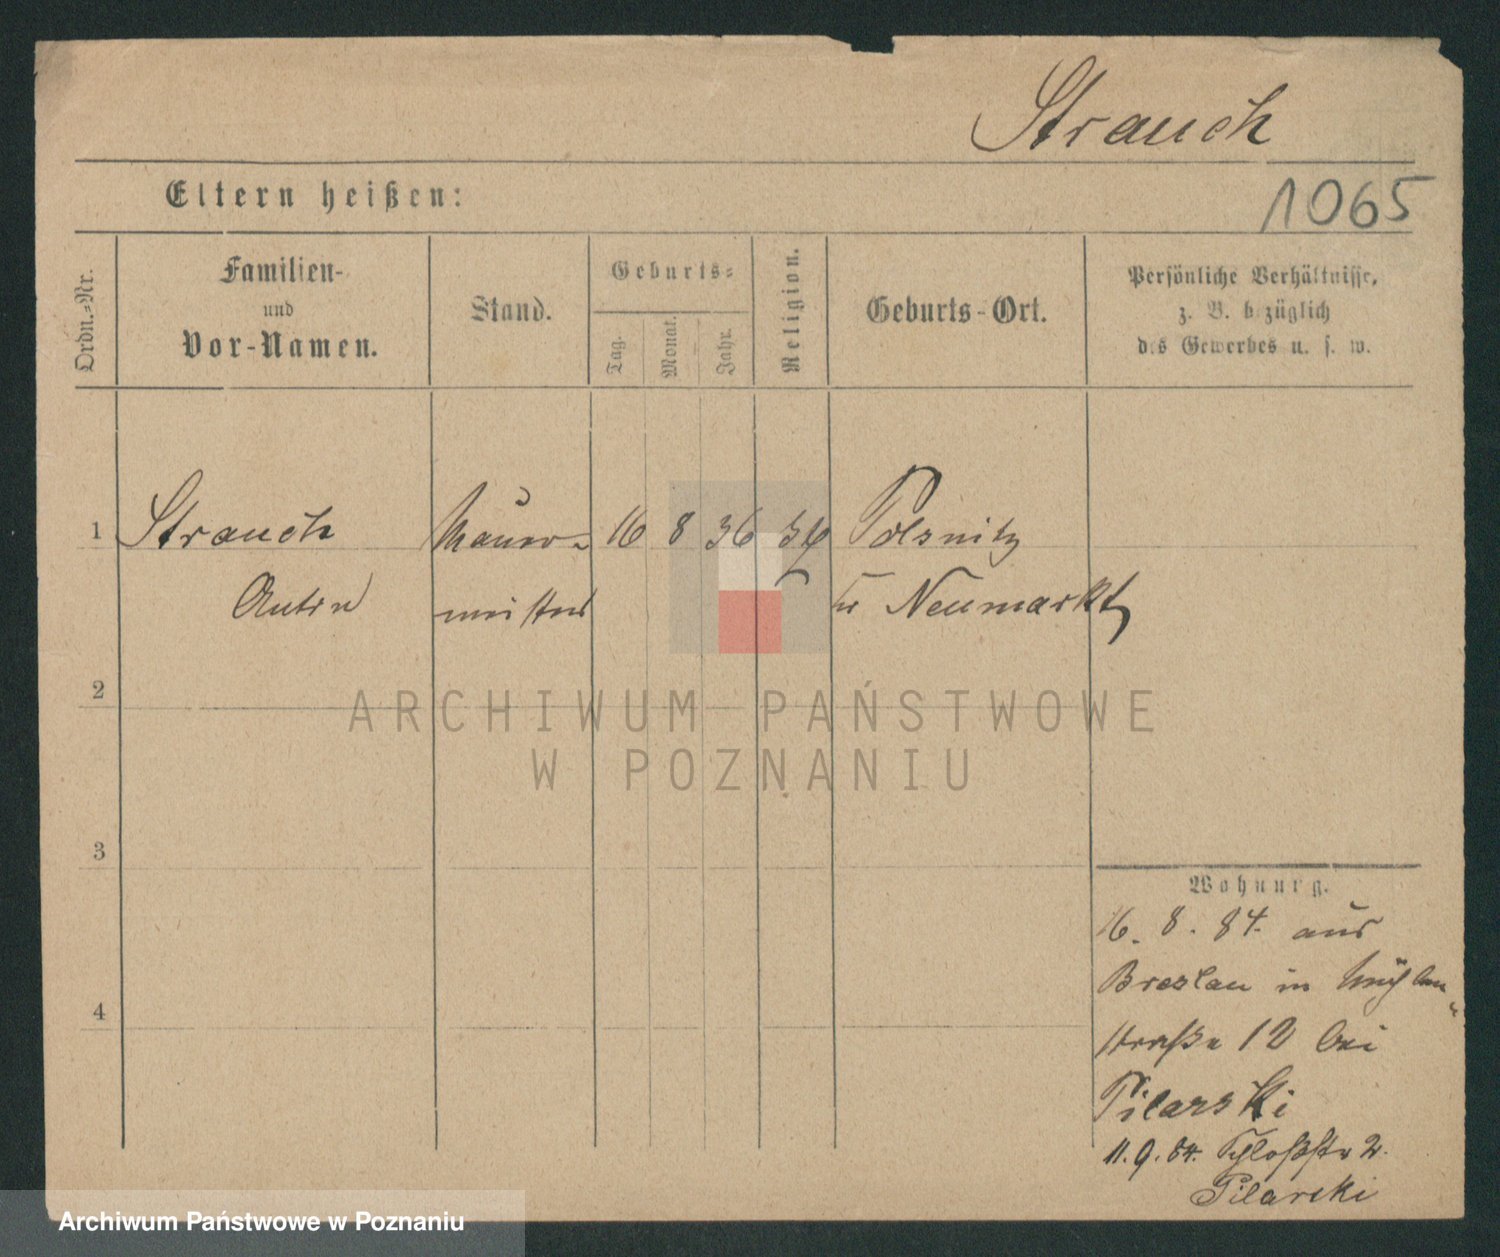 Strauch
Eltern heißen:
1065
Ordn.=Nr.
Familien-
und
Vor-Namen.
Stand.
Geburts=
Tag.
Monat.
Jahr.
Religion.
Geburts-Ort.
Persönliche Verhältnisse,
z. B. bezüglich
des Gewerbes u. s. w.
1 Strauch Maurer- 16 8 36 Polsnitz
meister Kr Neumarkt
2
3
4
Wohnung.
16. 8. 84. aus
Breslau in Mühlen-
straße 12 bei
Pilarski
11. 9. 84. Schloßstr 2.
Pilarski
ARCHIWUM PAŃSTWOWE
W POZNANIU
Archiwum Państwowe w Poznaniu